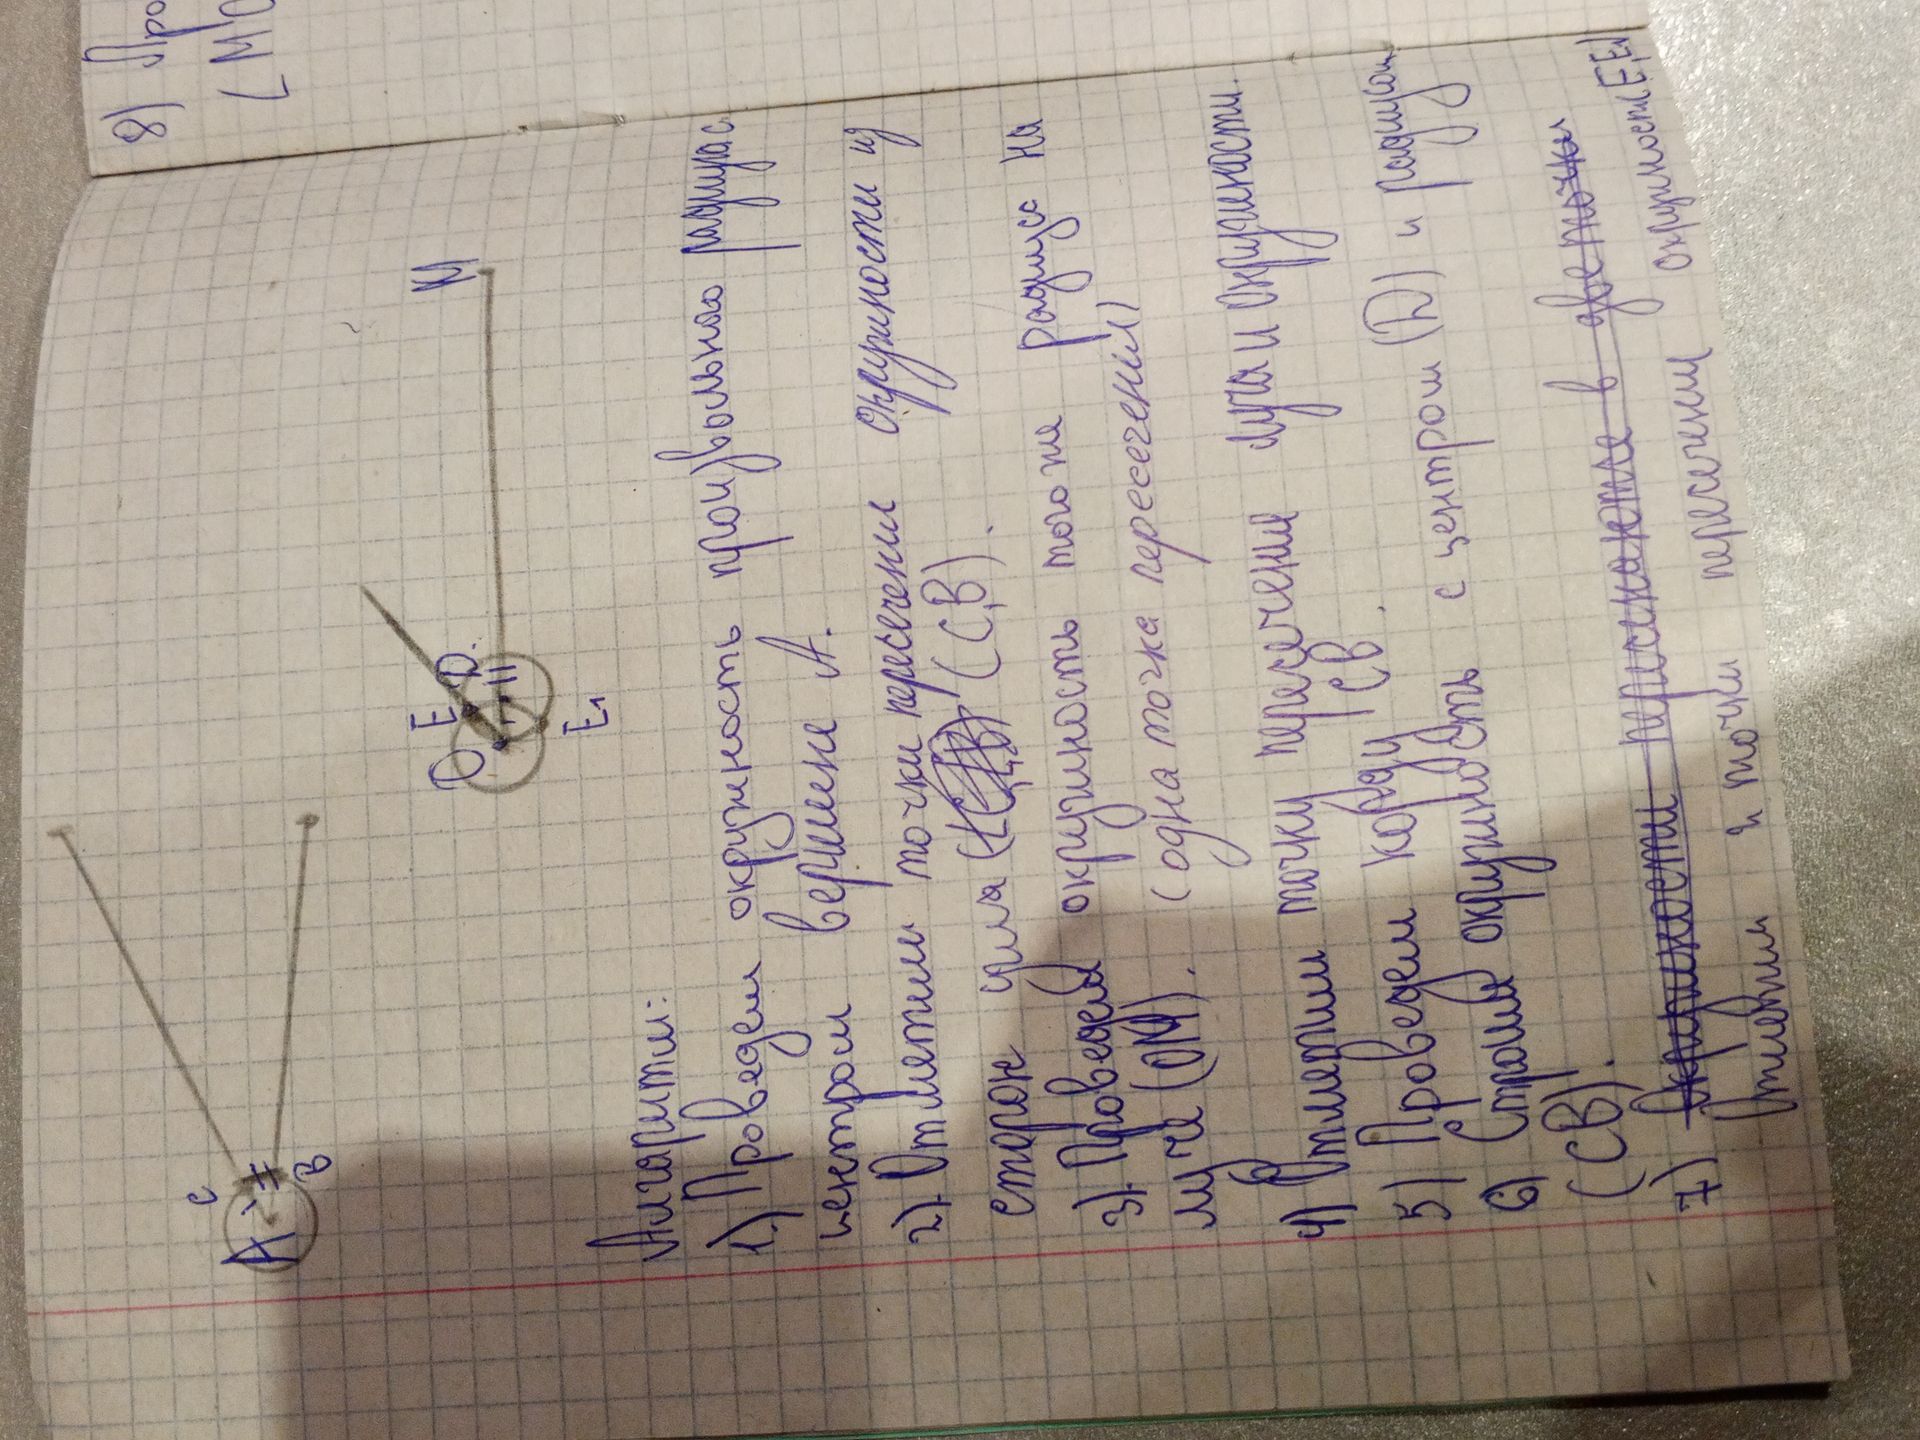 8) Про
(МО
A
C
B
O
E
D.
E₁
M
Алгоритм:
1) Проведем окружность произвольного радиуса с
центром вершине А.
2) Отметим точки пересечения окружности из
сторон угла (С,В).
3) Проведем окружность того же радиуса на
луче (ОМ). (одна точка пересечения)
4) Отметим точку пересечения луча и окружности.
5) Проведем хорду СВ.
6) Строим окружность с центром (D) и радиусом
(СВ).
7) окружности пересекаются в две точки
Отметим 2 точки пересечения окружности E,E₁